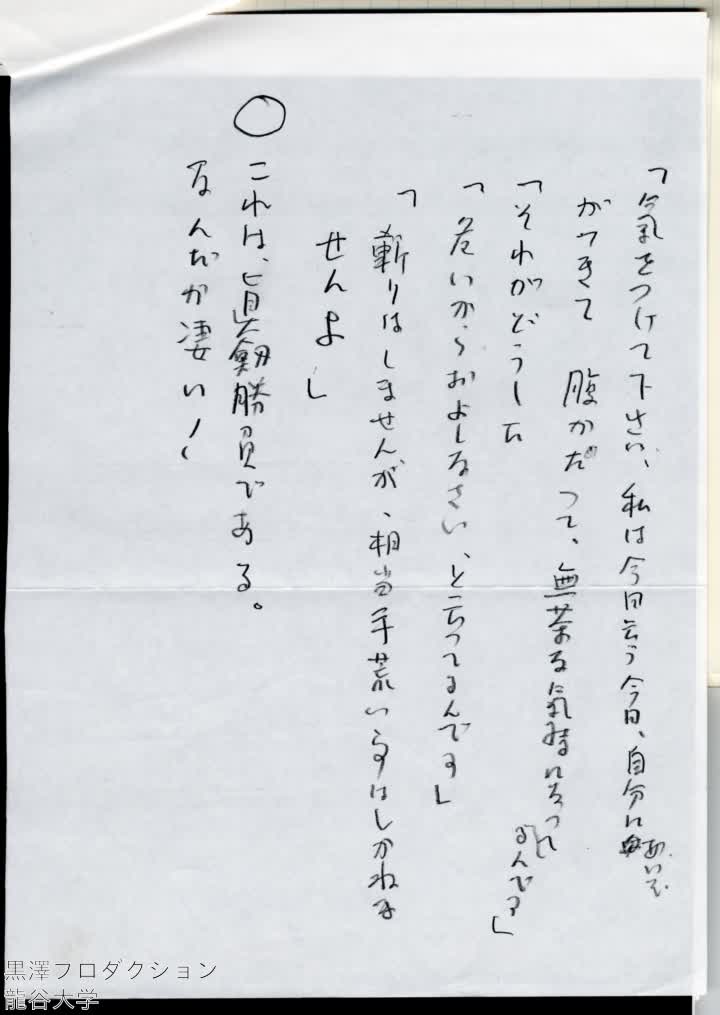 「気をつけて下さい、私は今日云う今日、自分にあいそ
がつきて 腹がたって、無茶な気持になって
るんです」
「それがどうした
「危いからおよしなさい、と云ってるんです」
「斬りはしませんが、相当手荒い事はしかねま
せんよ」
○
これは、真剣勝負である。
なんだか凄い!
黒澤プロダクション
龍谷大学